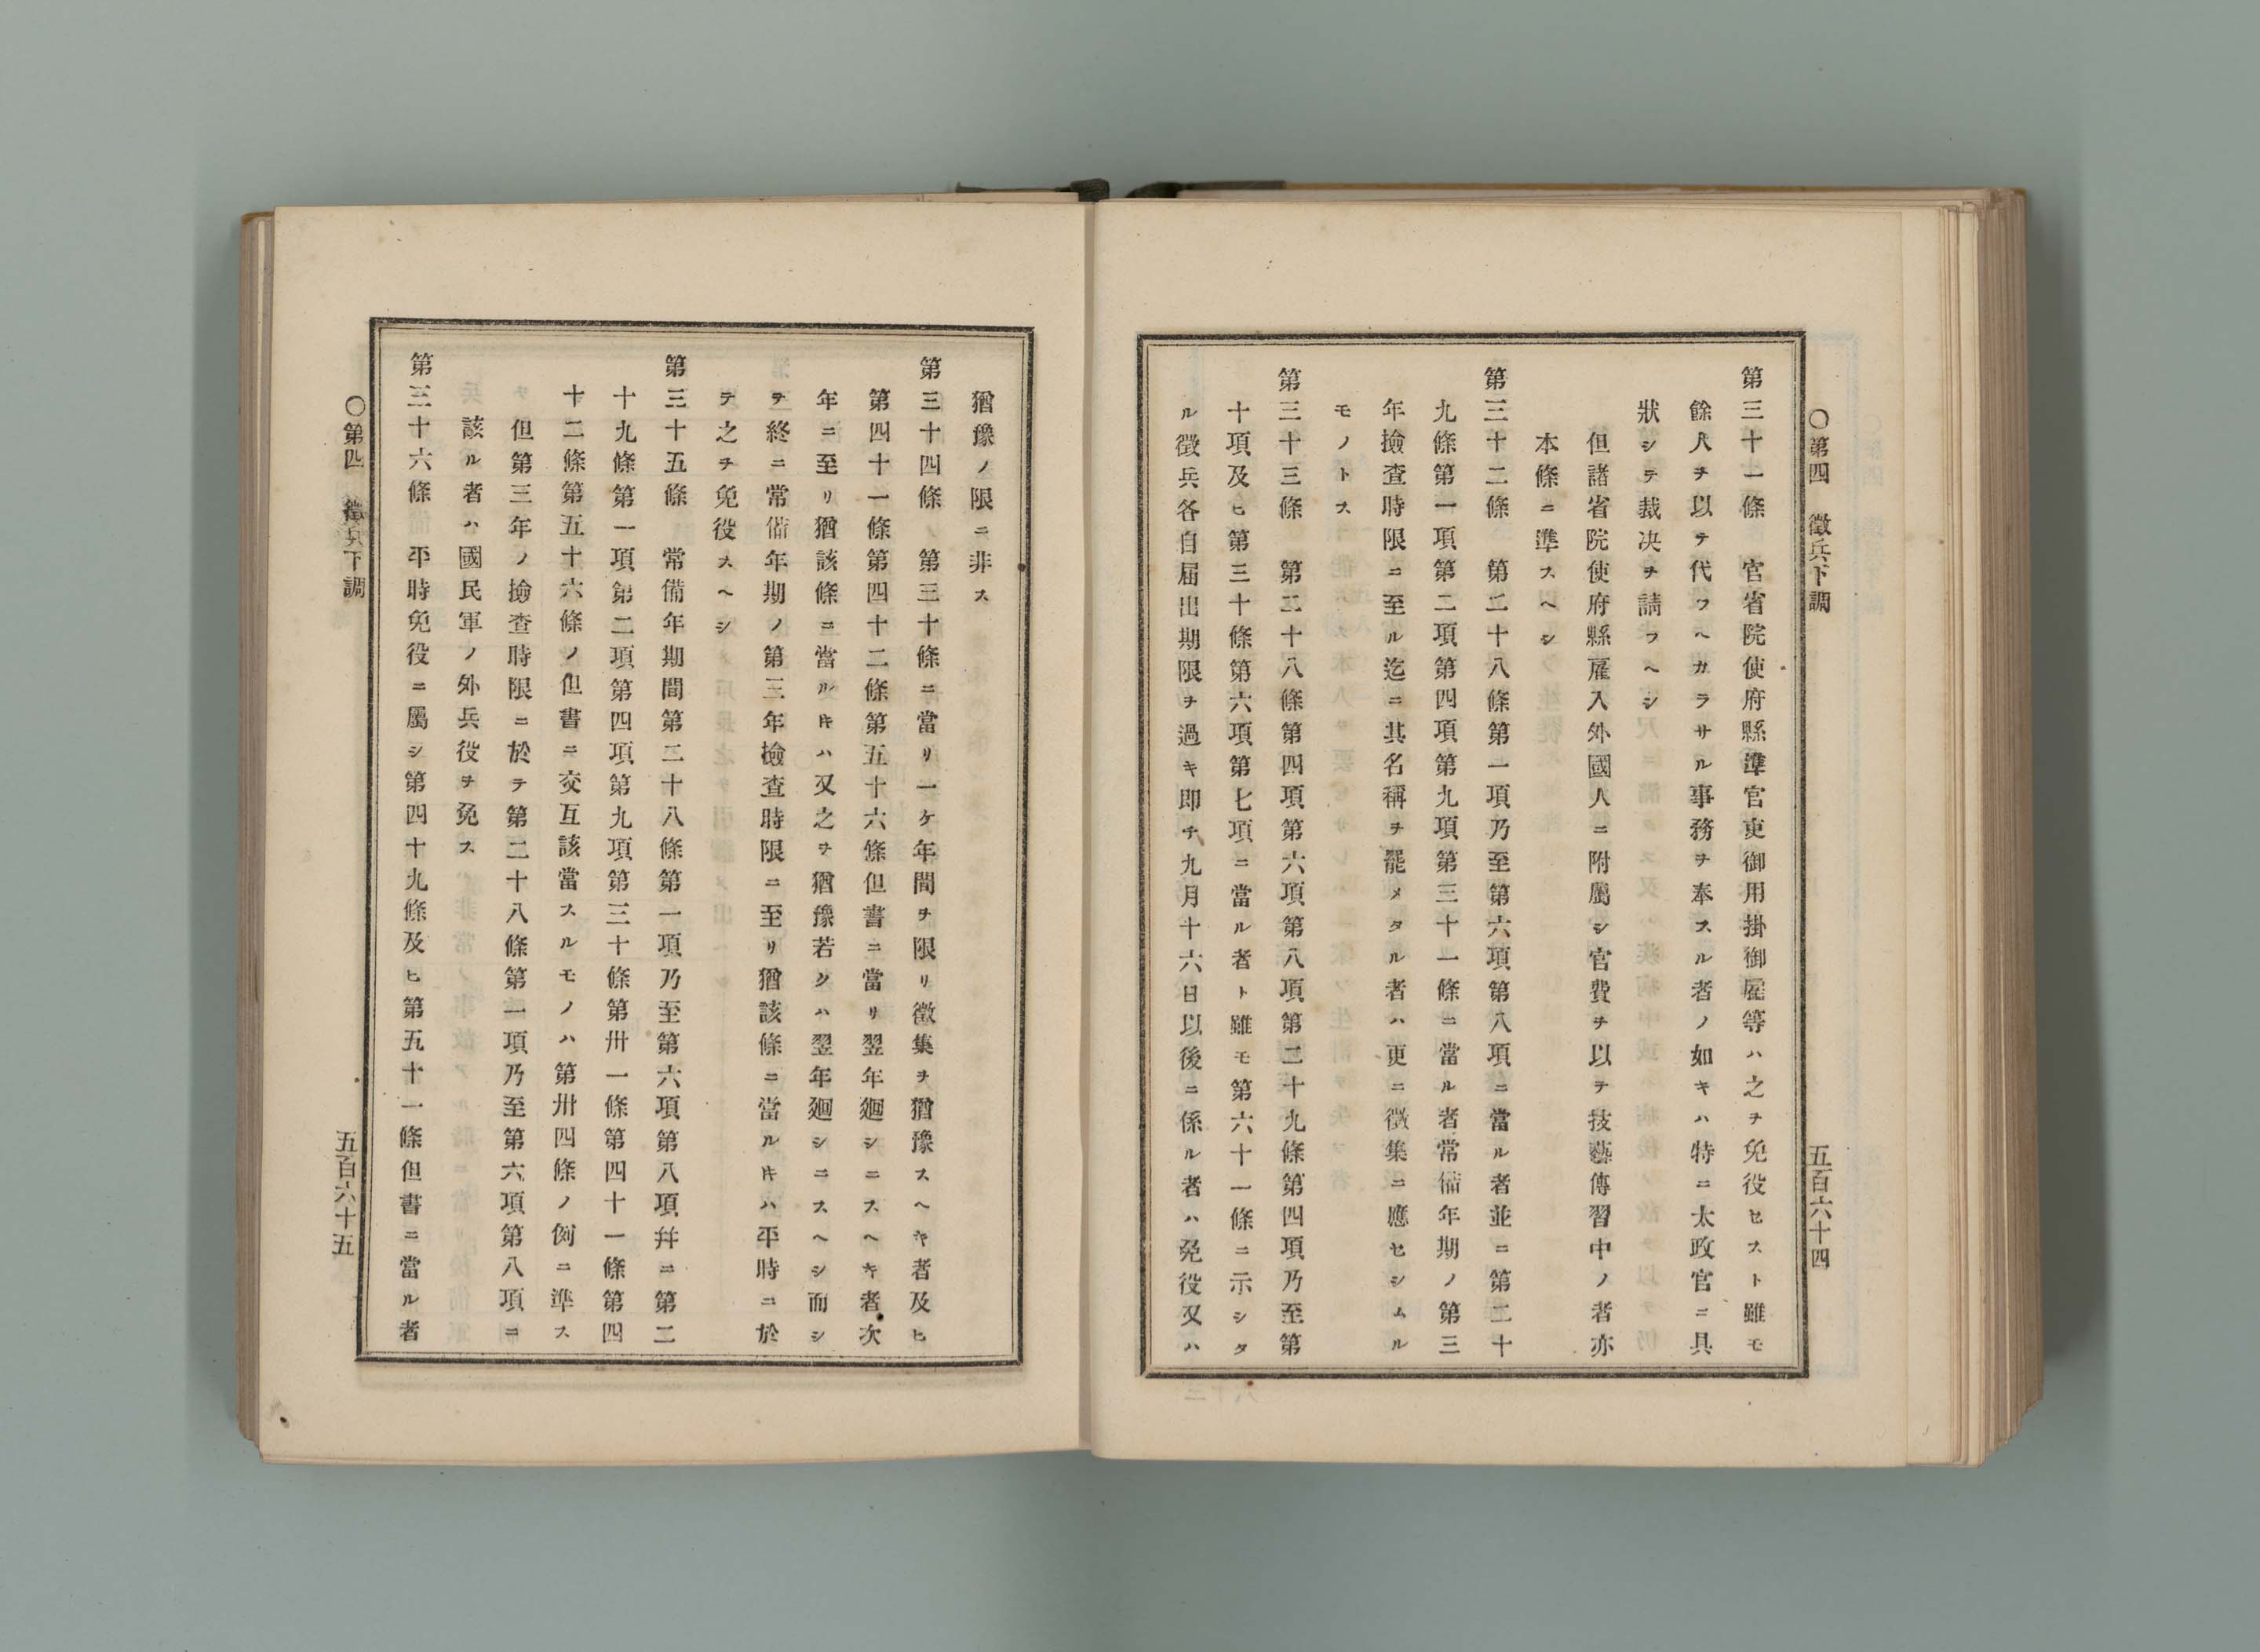 〇第四　徵兵下調
五百六十四
第三十一條　官省院使府縣準官吏御用掛御雇等ハ之ヲ免役セスト雖モ
餘人ヲ以テ代フヘカラサル事務ヲ奉スル者ノ如キハ特ニ太政官ニ具
狀シテ裁決ヲ請フヘシ
但諸省院使府縣雇入外國人ニ附屬シ官費ヲ以テ技藝傳習中ノ者亦
本條ニ準スヘシ
第三十二條　第二十八條第一項乃至第六項第八項ニ當ル者並ニ第二十
九條第一項第二項第四項第九項第三十一條ニ當ル者常備年期ノ第三
年撿査時限ニ至ル迄ニ其名稱ヲ罷メタル者ハ更ニ徵集ニ應セシムル
モノトス
第三十三條　第二十八條第四項第六項第八項第二十九條第四項乃至第
十項及ヒ第三十條第六項第七項ニ當ル者ト雖モ第六十一條ニ示シタ
ル徵兵各自届出期限ヲ過キ即チ九月十六日以後ニ係ル者ハ免役又ハ
猶豫ノ限ニ非ス
第三十四條　第三十條ニ當リ一ケ年間ヲ限リ徵集ヲ猶豫スヘキ者及ヒ
第四十一條第四十二條第五十六條但書ニ當リ翌年廻シニスヘキ者次
年ニ至リ猶該條ニ當ルキハ又之ヲ猶豫若クハ翌年廻シニスヘシ而シ
ヲ終ニ常備年期ノ第三年撿査時限ニ至リ猶該條ニ當ルキハ平時ニ於
テ之ヲ免役スヘシ
第三十五條　常備年期間第二十八條第一項乃至第六項第八項幷ニ第二
十九條第一項第二項第四項第九項第三十條第卅一條第四十一條第四
十二條第五十六條ノ但書ニ交互該當スルモノハ第卅四條ノ例ニ準ス
但第三年ノ撿査時限ニ於テ第二十八條第一項乃至第六項第八項ニ
該ル者ハ國民軍ノ外兵役ヲ免ス
第三十六條　平時免役ニ屬シ第四十九條及ヒ第五十一條但書ニ當ル者
〇第四　徵兵下調
五百六十五